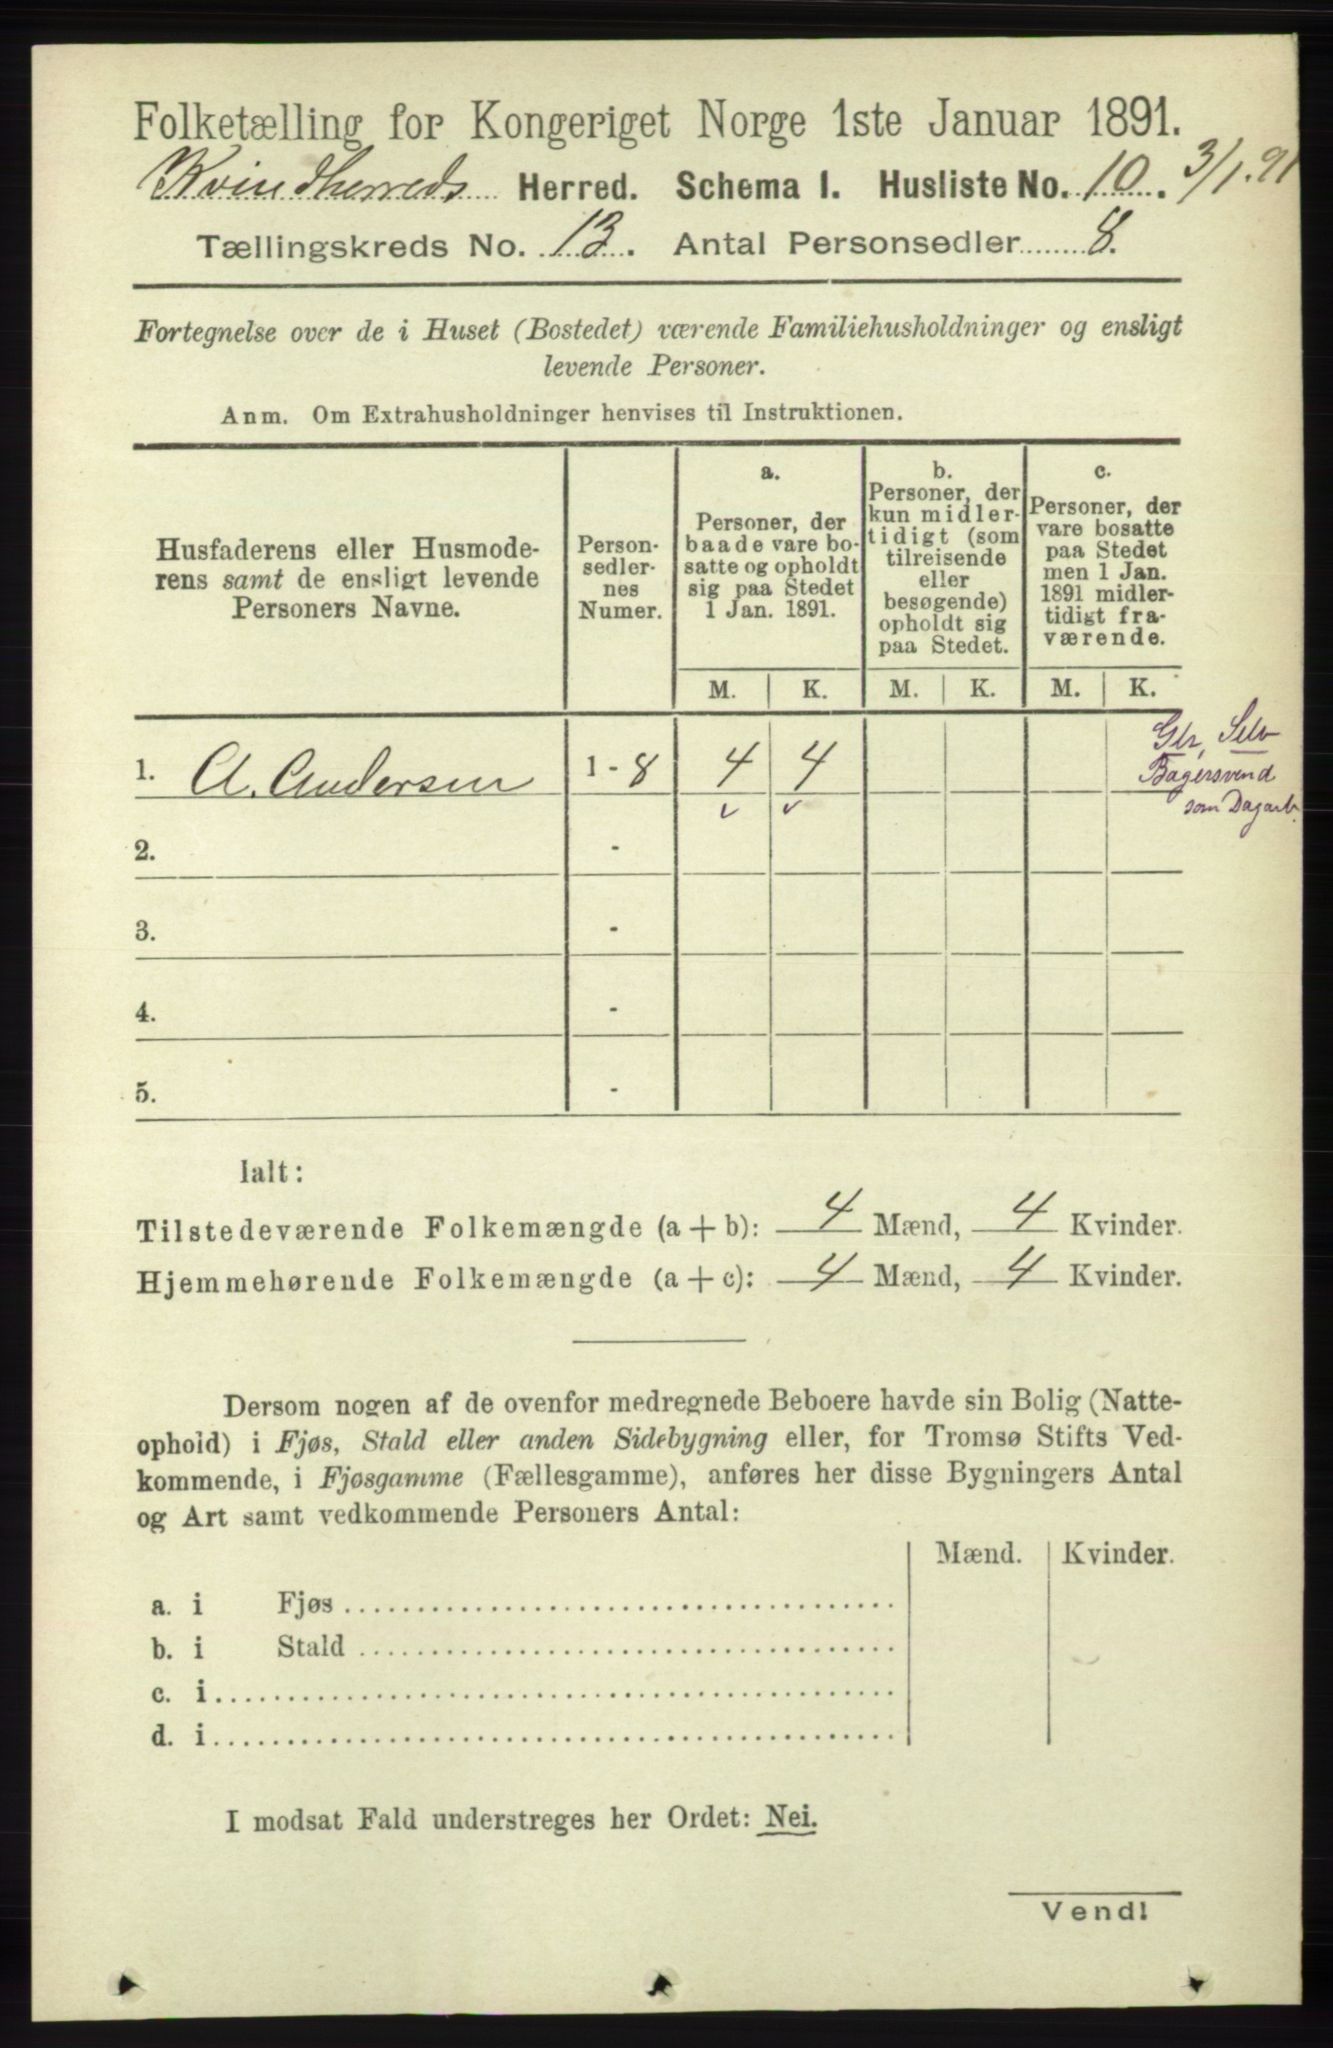 Folketælling for Kongeriget Norge 1ste Januar 1891.
Kvindherreds Herred. Schema I. Husliste No. 10. 3/1.91
Tællingskreds No. 13. Antal Personsedler 8.
Fortegnelse over de i Huset (Bostedet) værende Familiehusholdninger og ensligt
levende Personer.
Anm. Om Extrahusholdninger henvises til Instruktionen.
Husfaderens eller Husmode-
rens samt de ensligt levende
Personers Navne.
Person-
sedler-
nes
Numer.
a.
Personer, der
baade vare bo-
satte og opholdt
sig paa Stedet
1 Jan. 1891.
b.
Personer, der
kun midler-
tidigt (som
tilreisende
eller
besøgende)
opholdt sig
paa Stedet.
c.
Personer, der
vare bosatte
paa Stedet
men 1 Jan.
1891 midler-
tidigt fra-
værende.
M. K. M. K. M. K.
1. A. Andersen 1 - 8 4 4
Selv
Bagersvend
som Dagarb.
2. -
3. -
4. -
5. -
Ialt:
Tilstedeværende Folkemængde (a + b): 4 Mænd, 4 Kvinder.
Hjemmehørende Folkemængde (a + c): 4 Mænd, 4 Kvinder.
Dersom nogen af de ovenfor medregnede Beboere havde sin Bolig (Natte-
ophold) i Fjøs, Stald eller anden Sidebygning eller, for Tromsø Stifts Ved-
kommende, i Fjøsgamme (Fællesgamme), anføres her disse Bygningers Antal
og Art samt vedkommende Personers Antal:
Mænd. Kvinder.
a. i Fjøs
b. i Stald
c. i
d. i
I modsat Fald understreges her Ordet: Nei.
Vend!